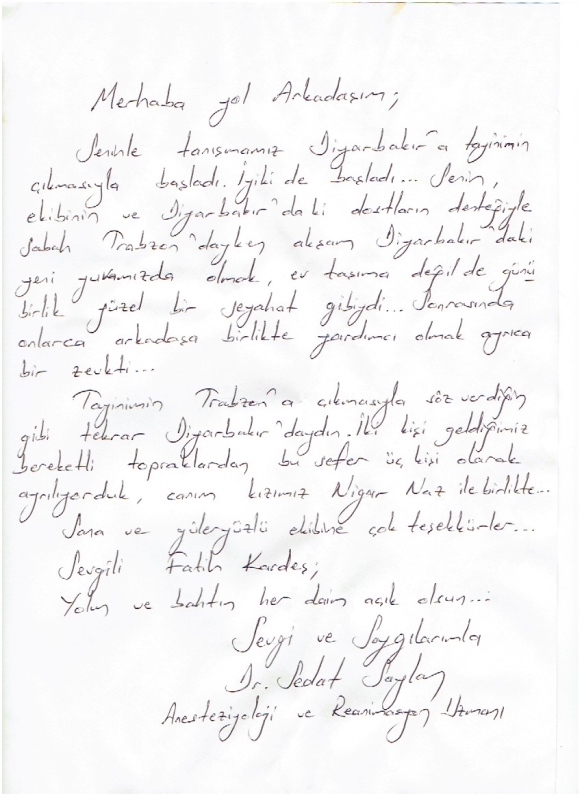 Merhaba yol Arkadaşım;
Seninle tanışmamız Diyarbakır'a tayinimin
çıkmasıyla başladı. İyiki de başladı... Senin,
ekibinin ve Diyarbakır'da ki dostların desteğiyle
sabah Trabzon'dayken akşam Diyarbakır'daki
yeni yuvamızda olmak, ev taşıma değil de günü
birlik güzel bir seyahat gibiydi... Sonrasında
onlarca arkadaşa birlikte yardımcı olmak ayrıca
bir zevkti...
Tayinimin Trabzon'a çıkmasıyla söz verdiğin
gibi tekrar Diyarbakır'daydın. İki kişi geldiğimiz
bereketli topraklardan bu sefer üç kişi olarak
ayrılıyorduk, canım kızımız Nigar Naz ile birlikte...
Sana ve güleryüzlü ekibine çok teşekkürler...
Sevgili Fatih Kardeş;
Yolun ve bahtın her daim açık olsun...
Sevgi ve Saygılarımla
Dr. Sedat Saylan
Anesteziyoloji ve Reanimasyon Uzmanı